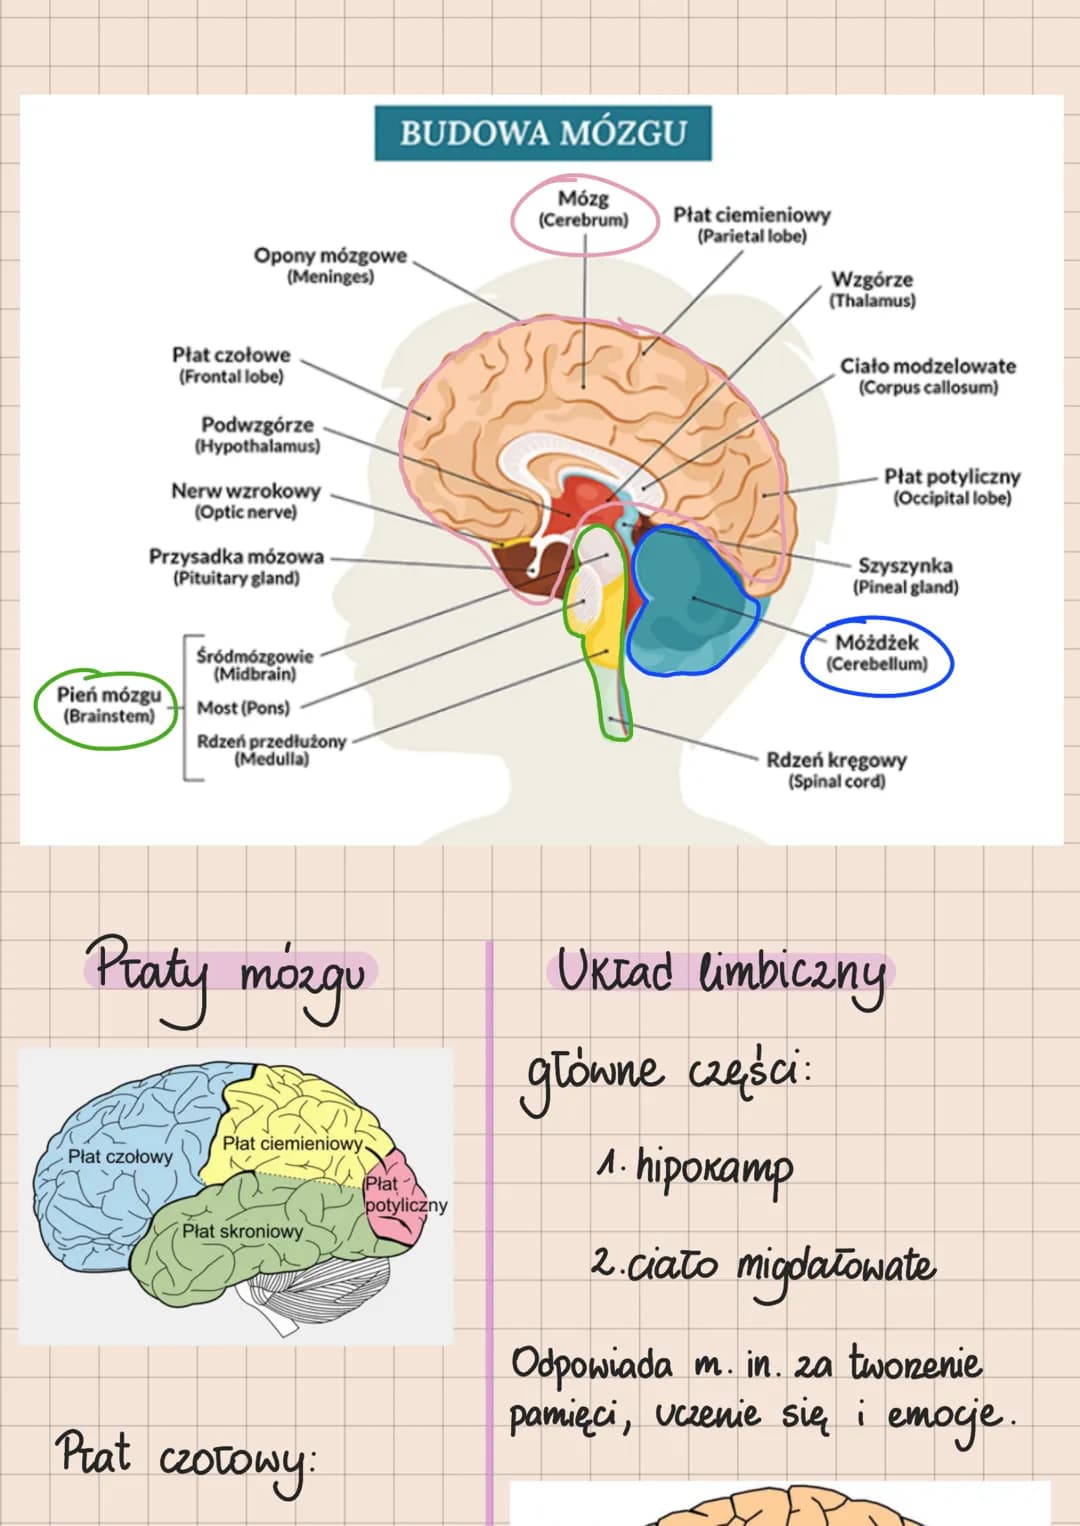 BUDOWA MÓZGU
Mózg
(Cerebrum)
Płat ciemieniowy
(Parietal lobe)
Opony mózgowe
(Meninges)
Wzgórze
(Thalamus)
Płat czołowe
(Frontal lobe)
Ciało modzelowate
(Corpus callosum)
Podwzgórze
(Hypothalamus)
Płat potyliczny
(Occipital lobe)
Nerw wzrokowy
(Optic nerve)
Przysadka mózowa
(Pituitary gland)
Szyszynka
(Pineal gland)
Móżdżek
(Cerebellum)
Śródmózgowie
(Midbrain)
Pień mózgu
(Brainstem)
Most (Pons)
Rdzeń przedłużony
(Medulla)
Rdzeń kręgowy
(Spinal cord)
Płaty mózgu
Płat czołowy
Płat ciemieniowy
Płat
potyliczny
Płat skroniowy
Płat czołowy:
Układ limbiczny
główne części:
1. hipokamp
2. ciało migdałowate
Odpowiada m. in. za tworzenie
pamięci, uczenie się i emocje.